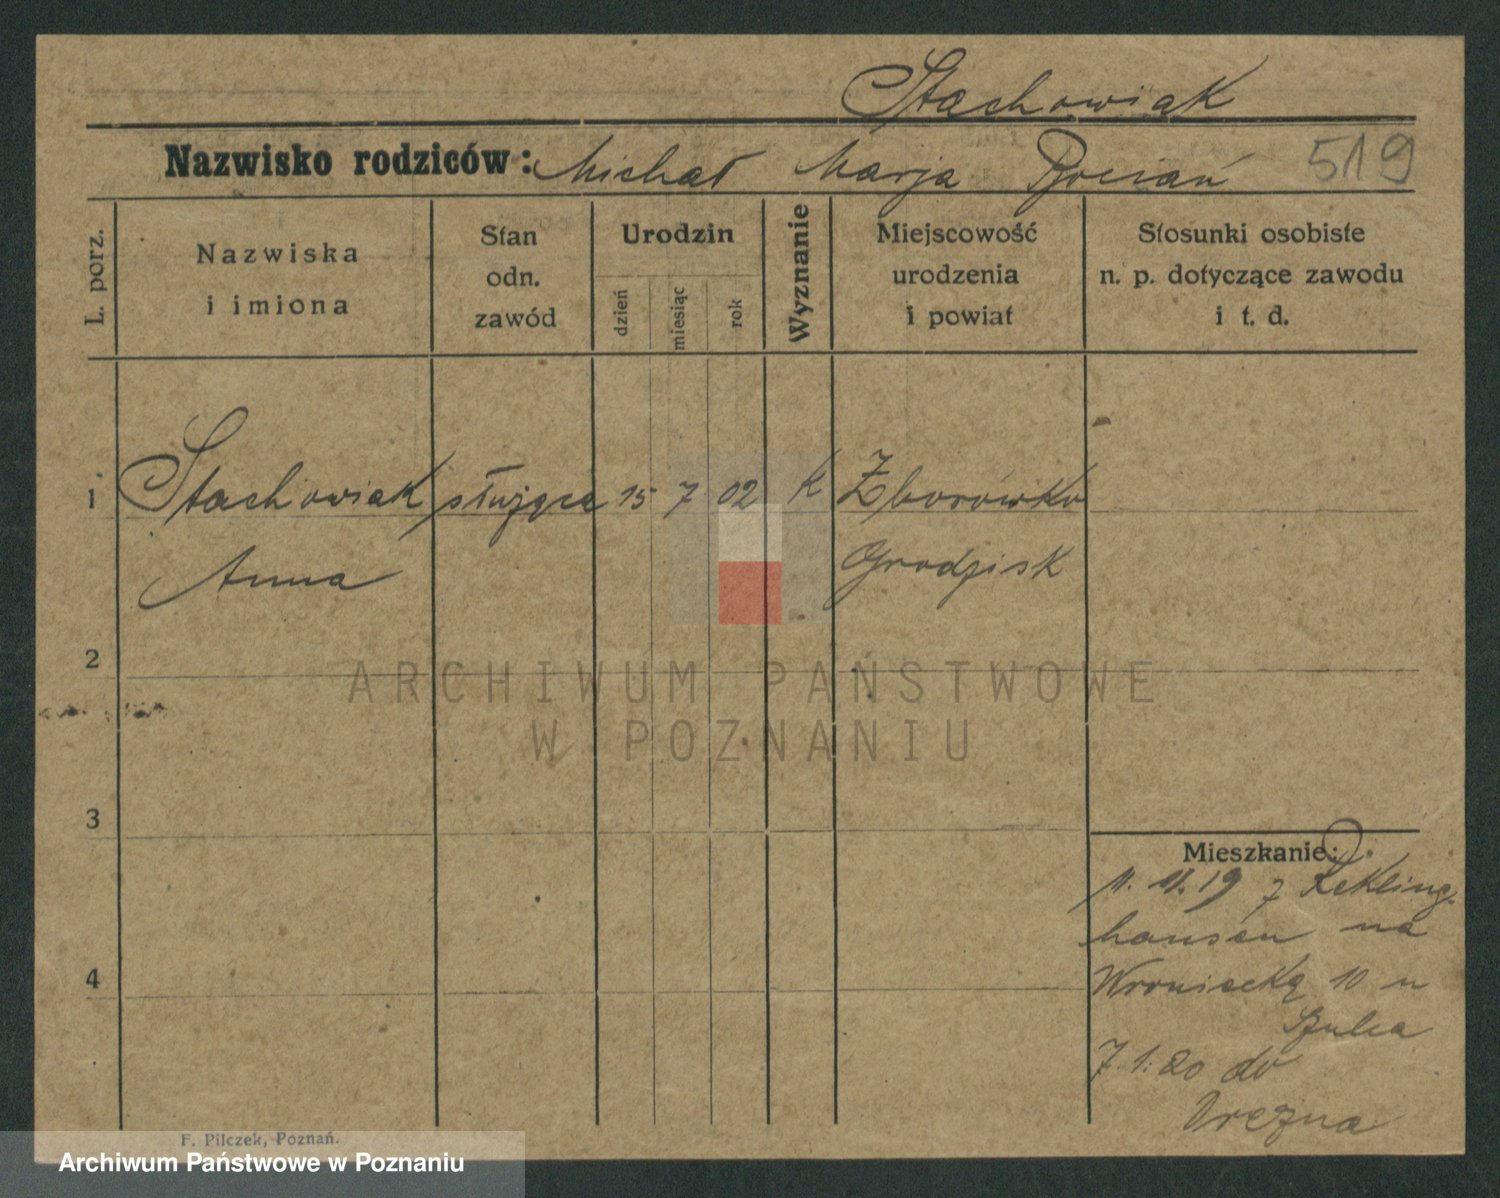 Stachowiak
Nazwisko rodziców: Michał Marja Bocian
519
L. porz.
Nazwiska
i imiona
Stan
odn.
zawód
Urodzin
dzień
miesiąc
rok
Wyznanie
Miejscowość
urodzenia
i powiat
Stosunki osobiste
n. p. dotyczące zawodu
i t. d.
1 Stachowiak służąca 15 7 02 K Zborówko
Anna Grodzisk
2
3
4
Mieszkanie:
11. 11. 19 z Rekling
hausen na
Wroniecką 10 u
Szulca
7. 1. 20 do
F. Pilczek, Poznań.
ARCHIWUM PAŃSTWOWE
W POZNANIU
Archiwum Państwowe w Poznaniu